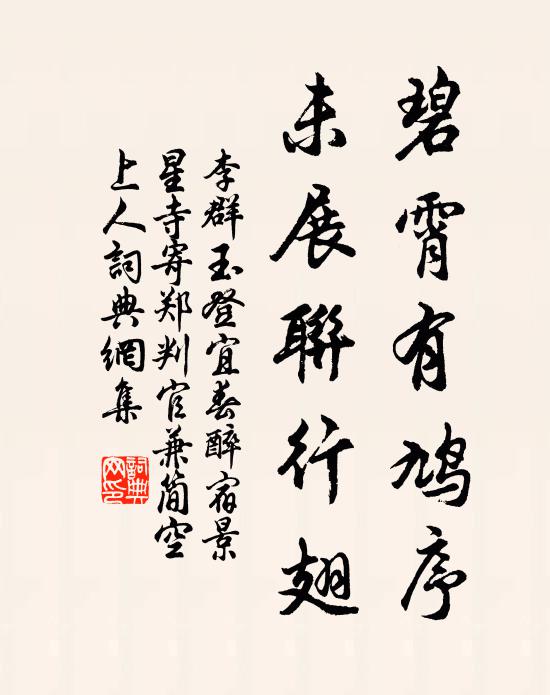 碧霄有鸠序
未展聯行翅
李群玉登宜春醉宿景
星寺寄郑判官兼简空
上人詞典網集
詞典
网印